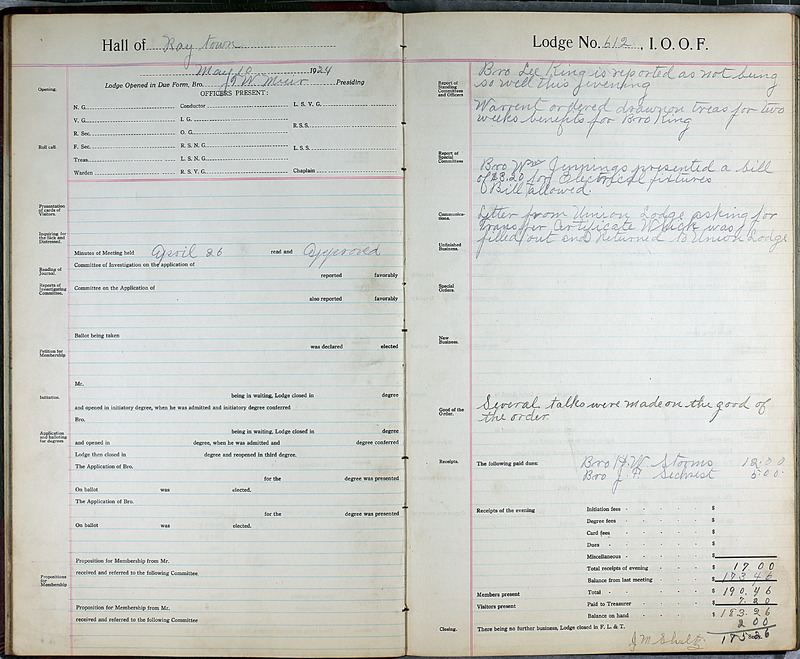 Hall of Ray town
May 10 1924
Lodge Opened in Due Form, Bro. J W Muir Presiding
OFFICERS PRESENT:
Opening.
Roll call.
N. G. Conductor L. S. V. G.
V. G. I. G.
R. Sec. O. G. R.S.S.
F. Sec. R. S. N. G.
Treas. L. S. N. G. L. S. S.
Warden R. S. V. G. Chaplain
Presentation of cards of Visitors.
Inquiring for the Sick and Distressed.
Minutes of Meeting held April 26 read and approved
Reading of Journal.
Committee of Investigation on the application of
reported favorably
Reports of Investigating Committee.
Committee on the Application of
also reported favorably
Ballot being taken
was declared elected
Petition for Membership
Mr.
being in waiting, Lodge closed in degree
Initiation.
and opened in initiatory degree, when he was admitted and initiatory degree conferred
Bro.
being in waiting, Lodge closed in degree
Application and balloting for degrees
and opened in degree, when he was admitted and degree conferred
Lodge then closed in degree and reopened in third degree.
The Application of Bro.
for the degree was presented
On ballot was elected.
The Application of Bro.
for the degree was presented
On ballot was elected.
Proposition for Membership from Mr.
received and referred to the following Committee.
Propositions for Membership
Proposition for Membership from Mr.
received and referred to the following Committee
Lodge No. 612, I. O. O. F.
Report of Standing Committees and Officers
Bro Lee King is reported as not being
so well this evening
Warrent ordered drawn on treas for two
weeks benefits for Bro King
Report of Special Committees
Bro Wm Jennings presented a bill
of 3.20 for Electrical fixtures
Bill allowed.
Communications.
Letter from Union Lodge asking for
Transfer Certificate Which was
filled out and Returned to Union Lodge
Unfinished Business.
Special Orders.
New Business.
Good of the Order.
Several talks were made on the good of
the order
Receipts.
The following paid dues: Bro J. W. Storms 12.00
Bro J. H. Sechrest 5.00
Receipts of the evening Initiation fees $
Degree fees $
Card fees $
Dues $
Miscellaneous $
Total receipts of evening $ 17 00
Balance from last meeting $ 173 46
Members present Total $ 190.46
Visitors present Paid to Treasurer $ 7.20
Balance on hand $ 183.26
Closing. There being no further business, Lodge closed in F. L. & T.
Secy.